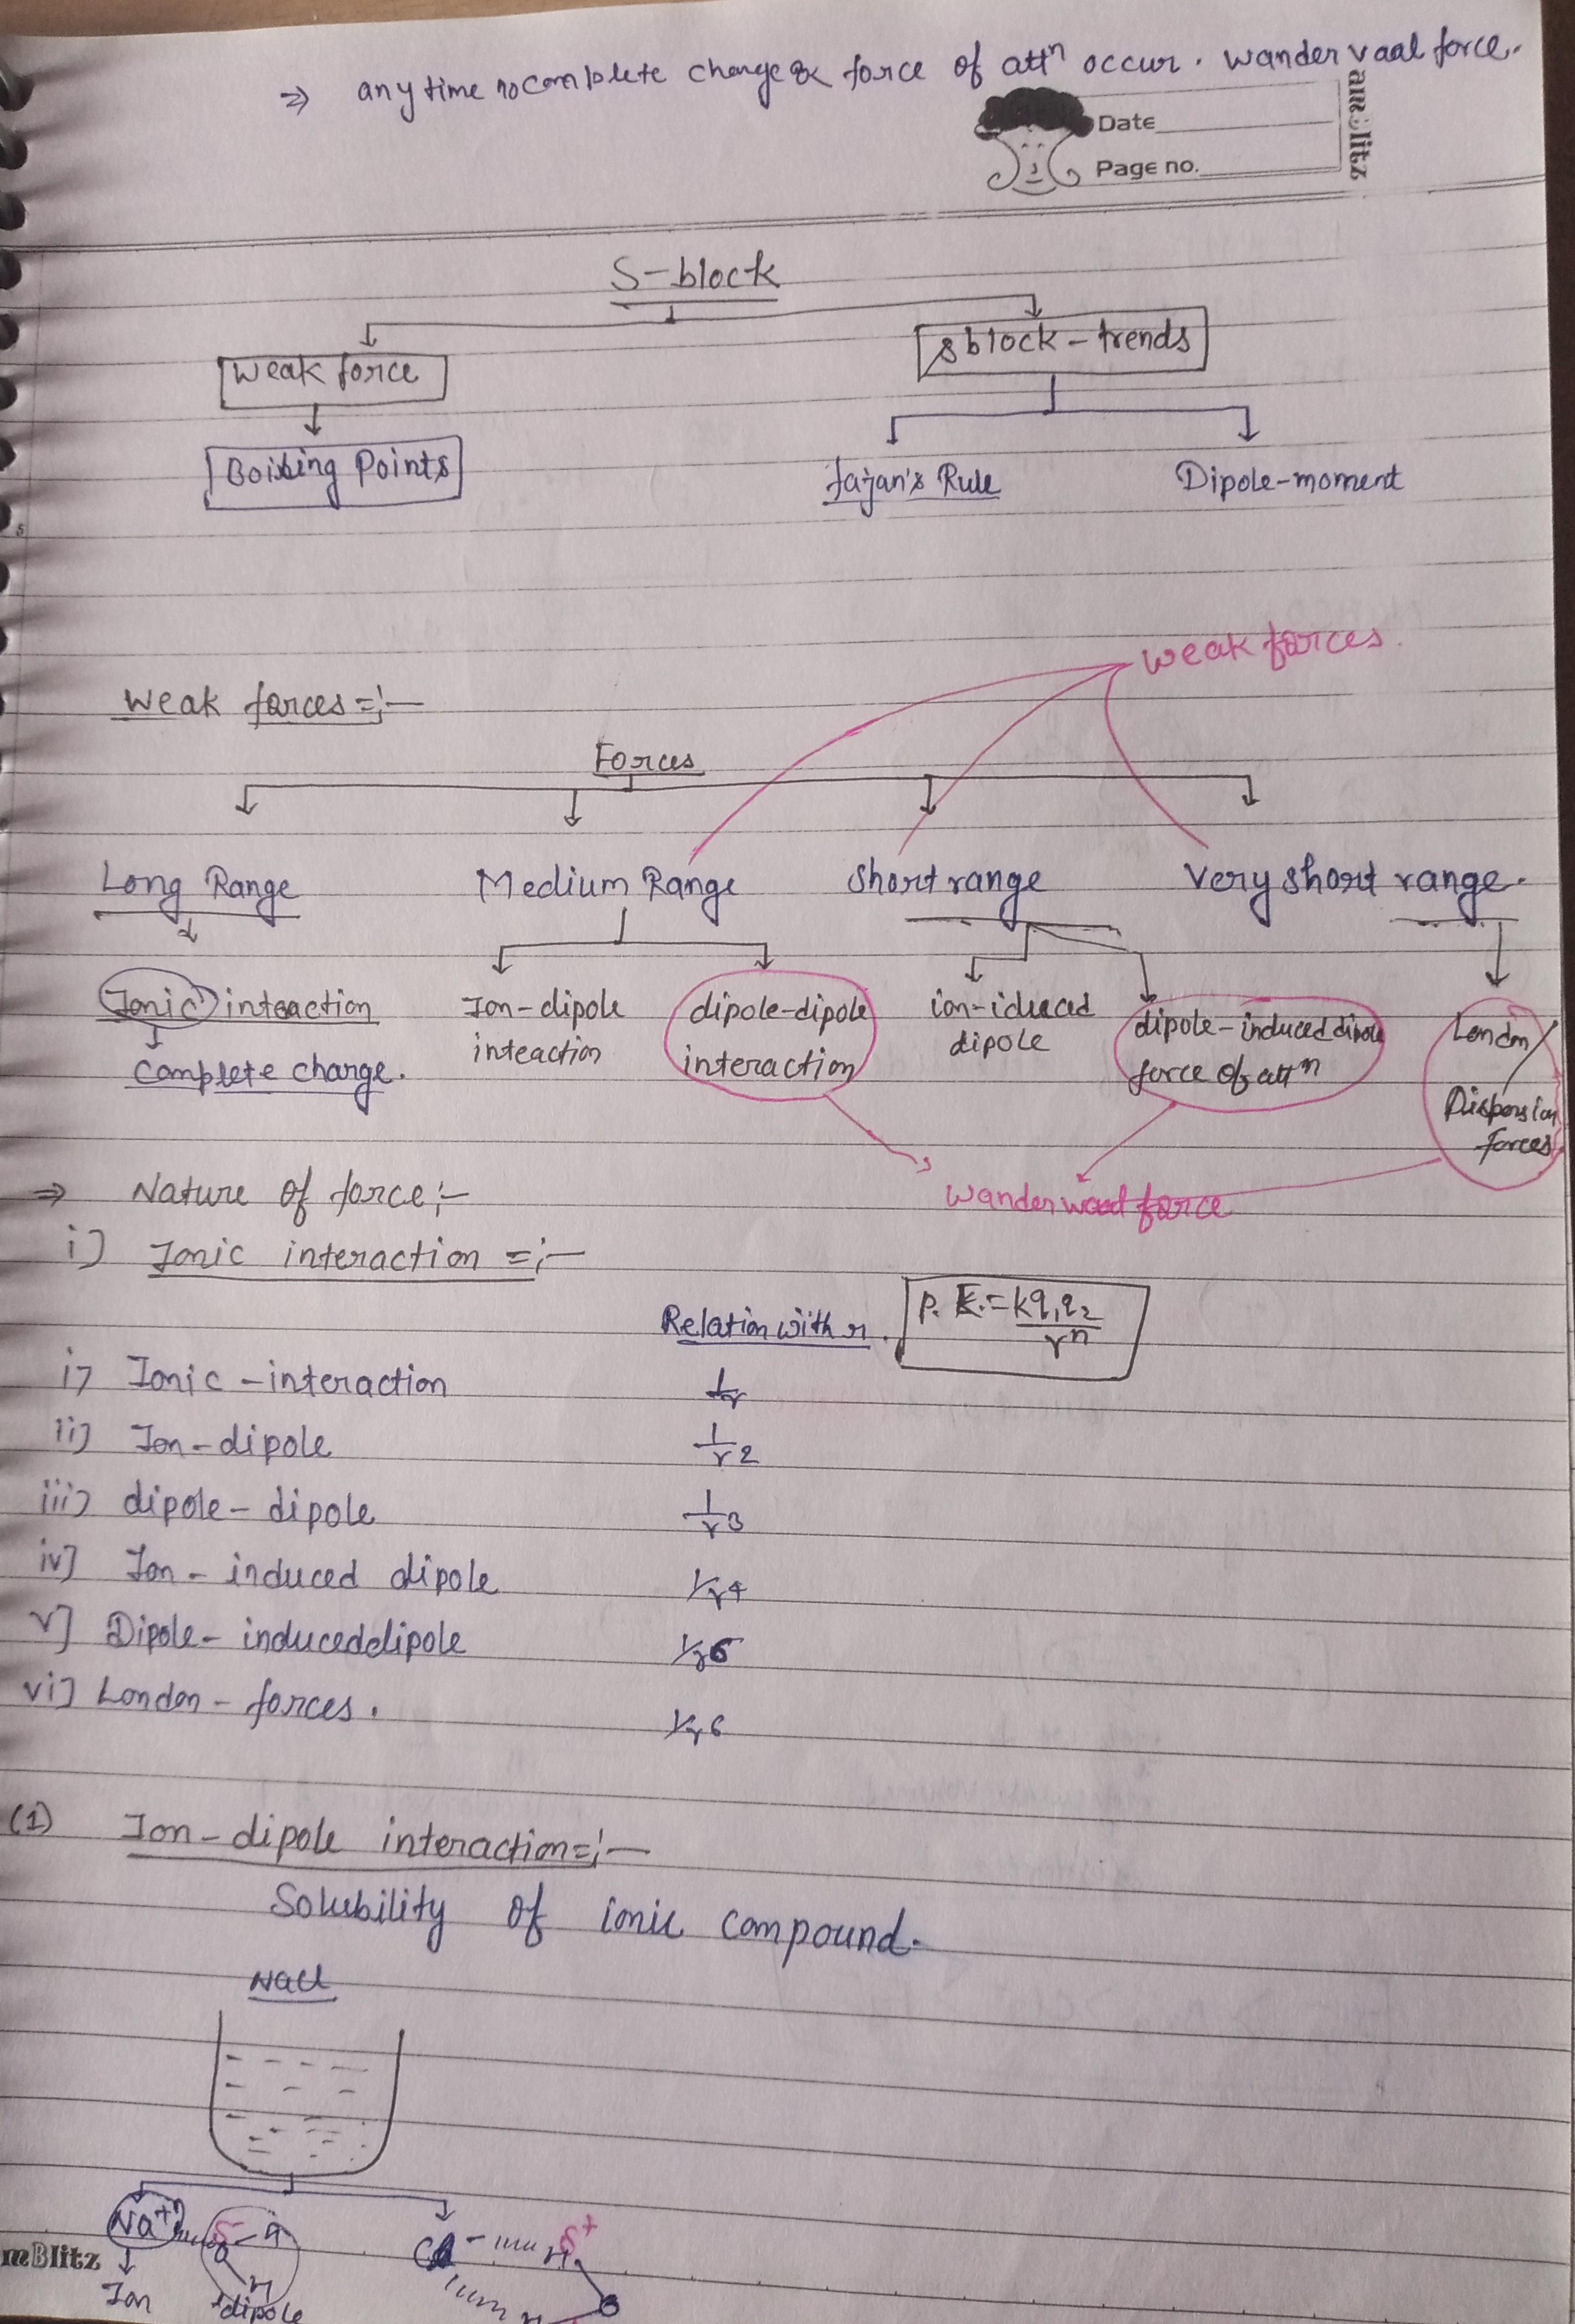 ⇒ anytime no complete charge & force of attⁿ occur. wander vaal force.
am3litz
Date
Page no.
S-block
Weak force
s block - trends
Boiling Points
fajan's Rule
Dipole-moment
Weak forces.
Weak forces =;-
Forces
Long Range
Medium Range
short range
Very short range.
Ionic inteaction
Ion-dipole
inteaction
dipole-dipole
interaction
ion-iduced
dipole
dipole-induced dipole
force of attⁿ
London
Dispersion
forces
complete charge.
wander waal force
⇒ Nature of force;-
i) Ionic interaction =;-
Relation with r.
P.E. = kq₁q₂/rⁿ
i) Ionic-interaction 1/r
ii) Ion-dipole 1/r2
iii) dipole-dipole 1/r3
iv) Ion-induced dipole 1/r4
v) Dipole-induceddipole 1/r6
vi) London-forces. 1/r6
(1) Ion-dipole interaction=;-
Solubility of ionic compound.
NaCl
Na⁺ δ⁻ O H H
Cl⁻ H δ⁺ O
mBlitz
Ion
dipole